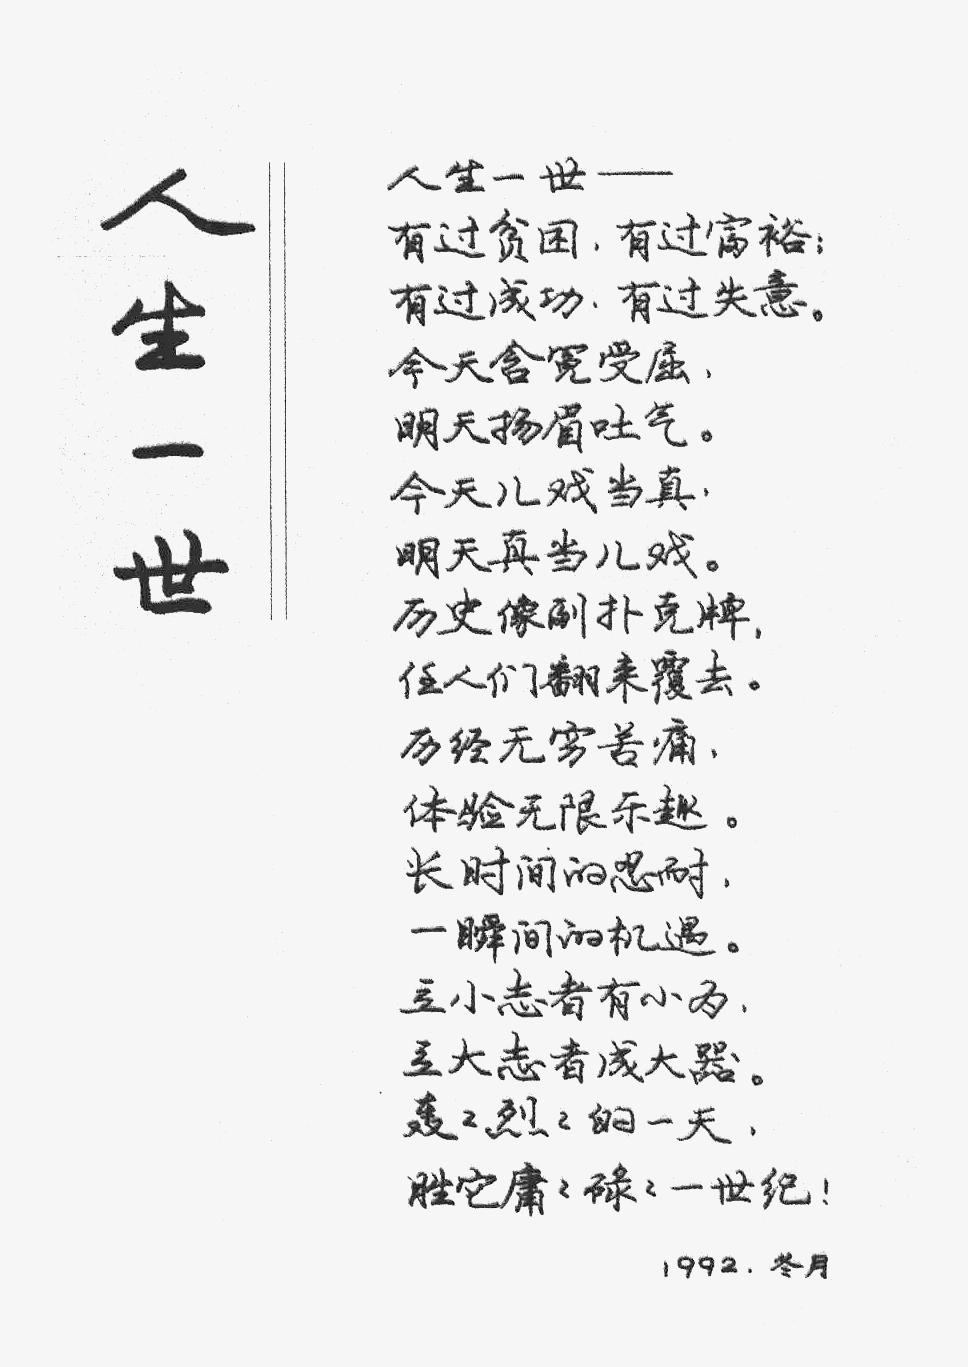 人生一世
人生一世——
有过贫困，有过富裕；
有过成功，有过失意。
今天含冤受屈，
明天扬眉吐气。
今天儿戏当真，
明天真当儿戏。
历史像副扑克牌，
任人们翻来覆去。
历经无穷苦痛，
体验无限乐趣。
长时间的忍耐，
一瞬间的机遇。
立小志者有小为，
立大志者成大器。
轰々烈々的一天，
胜它庸々碌々一世纪！
1992.冬月